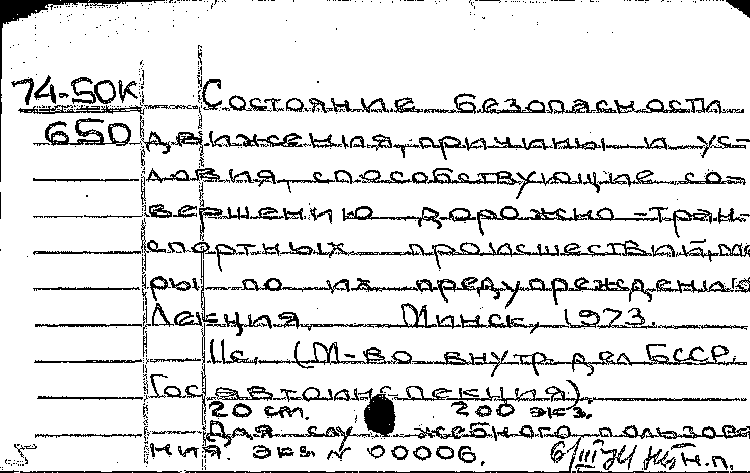 74-50к Состояние безопасности
650 движения, причины и ус-
ловия, способствующие со-
вершению дорожно-тран-
спортных происшествий, ме
ры по их предупреждению
Лекция. Минск, 1973.
11с. (М-во внутр. дел БССР.
Госавтоинспекция).
20 ст. 200 экз.
Для служебного пользова
ния. экз N 00006. 6/III 74 н.п.